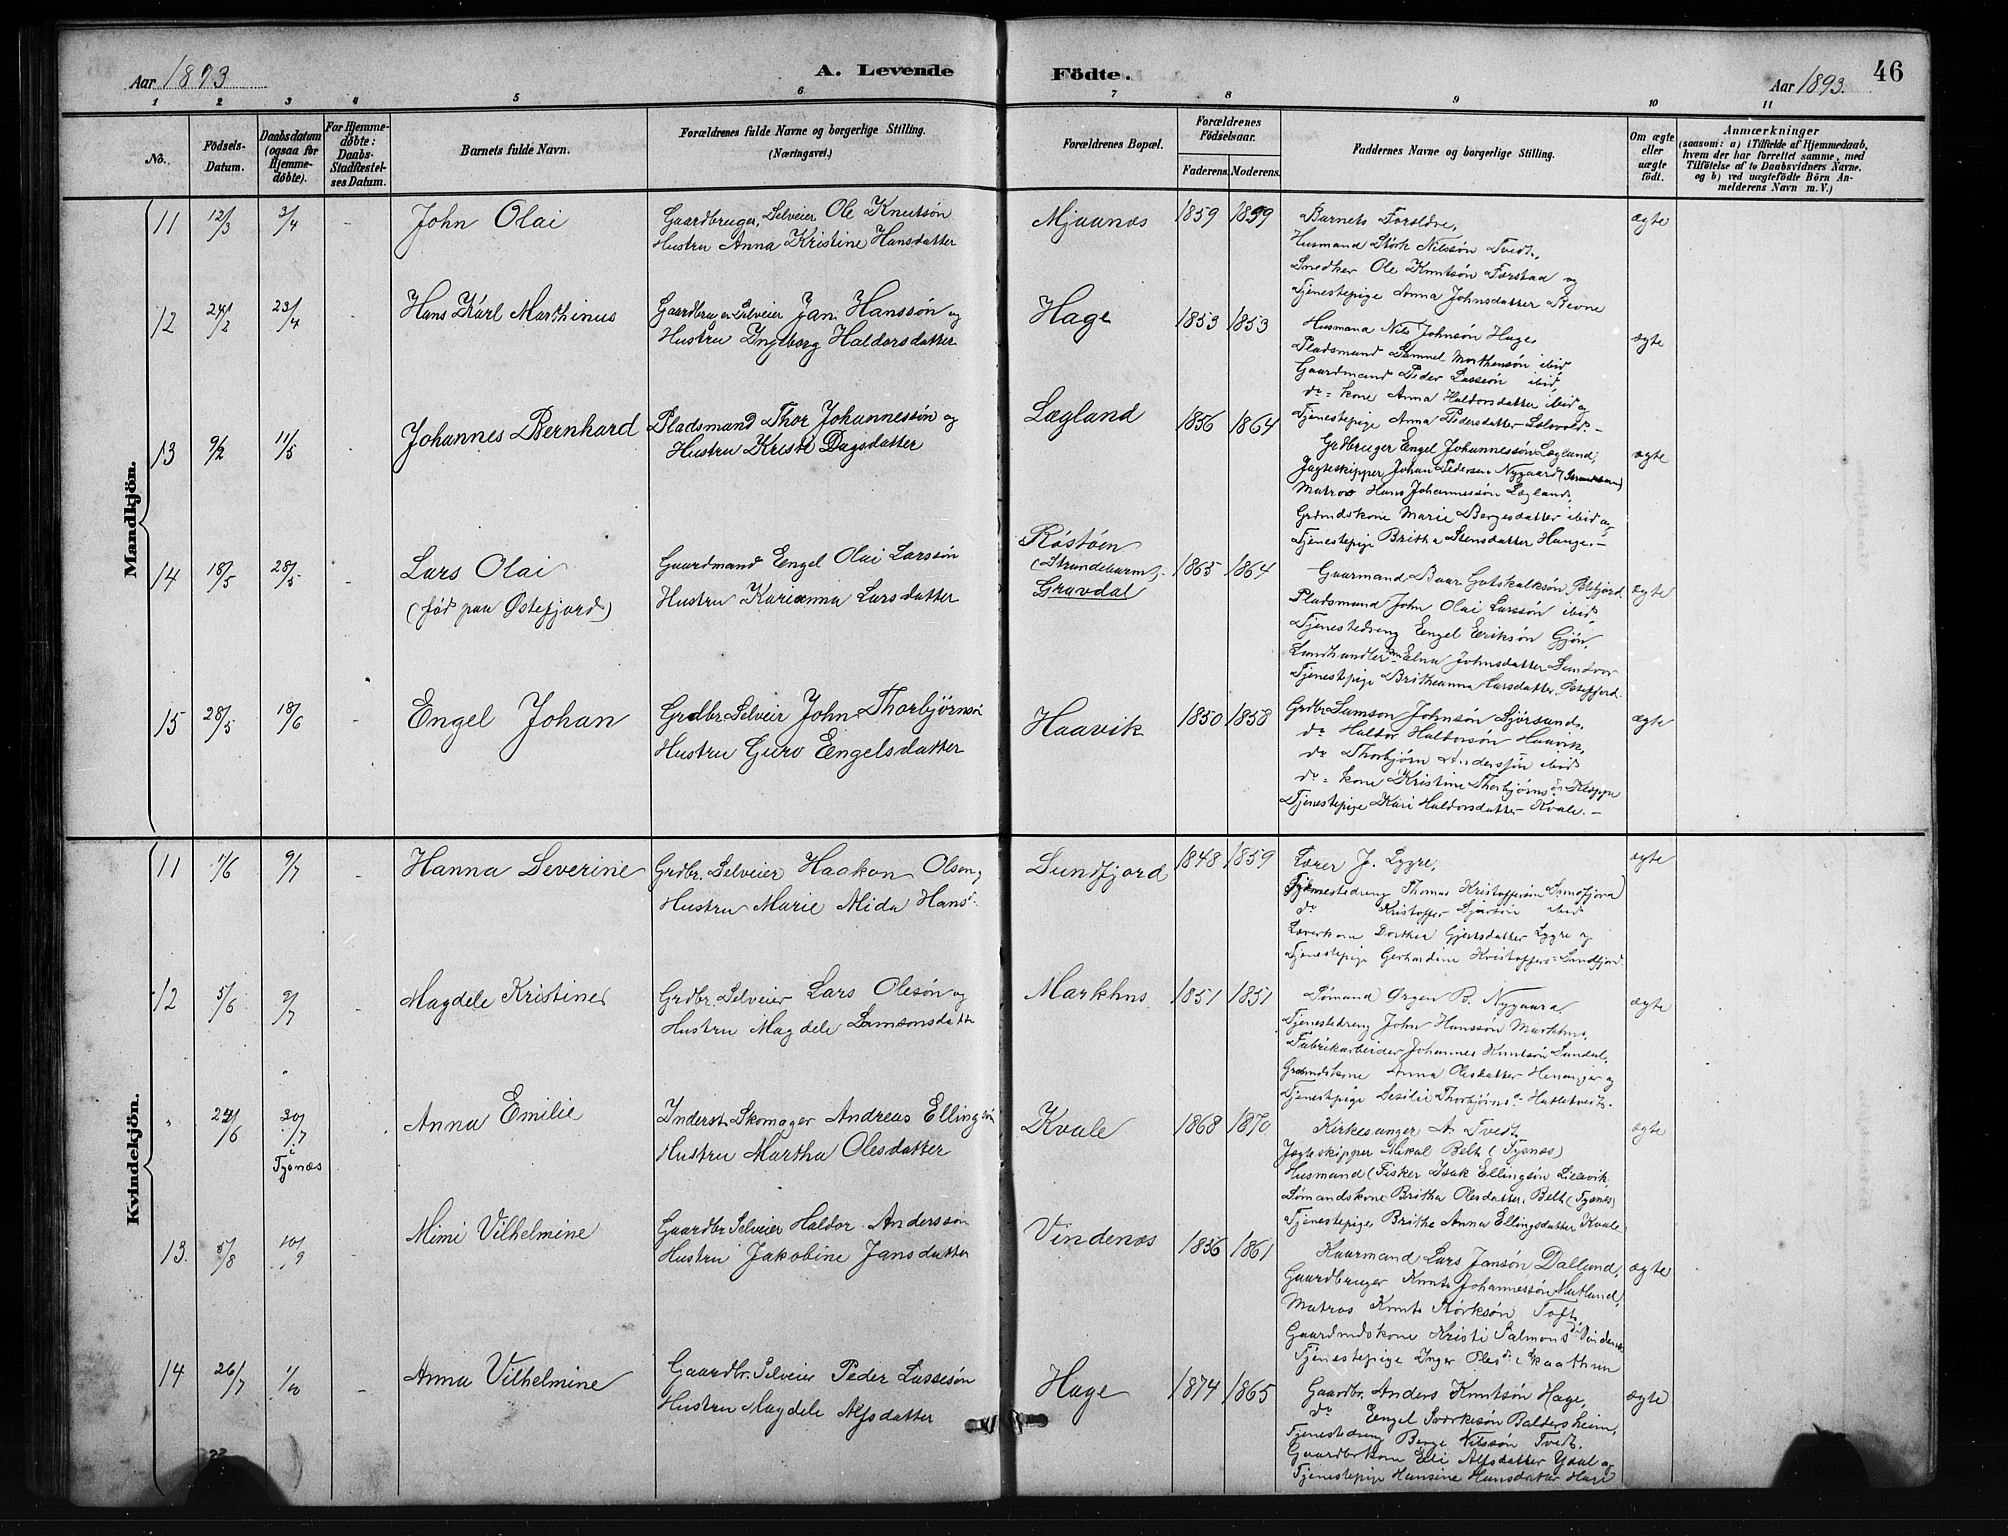 Aar 1893
A. Levende Födte.
Aar 1893.
46
1 2 3 4 5 6 7 8 9 10 11
No.
Födsels-Datum.
Daabsdatum (ogsaa for Hjemme-döbte).
For Hjemme-döbte: Daabs-Stadfæstel-ses Datum.
Barnets fulde Navn.
Forældrenes fulde Navne og borgerlige Stilling.
(Næringsvei.)
Forældrenes Bopæl.
Forældrenes Födselsaar.
Faderens. Moderens.
Faddernes Navne og borgerlige Stilling.
Om ægte eller uægte födt.
Anmærkninger
(saasom: a) i Tilfælde af Hjemmedaab,
hvem der har forrettet samme, med
Tilföielse af to Daabsvidners Navne.
og b) ved uægtefödte Börn An-
melderens Navn m. V.)
Mandkjön.
11 12/3 3/4 - John Olai
Gaardbruger, Selveier Ole Knutsön
Hustru Anna Kristine Hansdatter
Mjaanes 1859 1859
Barnets Forældre,
Husmand Störk Nilssön Tvedt,
Snedker Ole Knutsön Færstad og
Tjenestepige Anna Johnsdatter Stevne
ægte
12 24/2 23/4 Hans Karl Marthinus
Gaardbruger Selveier Jan Hanssön og
Hustru Ingeborg Haldorsdatter
Hage 1853 1853
Husmand Nils Johnsön Hage,
Pladsmand Samuel Morthensön ibid
Gaardmand Peder Lassesön ibid,
do = kone Anna Haldorsdatter ibid og
Tjenestepige Anna Pedersdatter
ægte
13 9/2 11/5 Johannes Bernhard
Pladsmand Thor Johannessön og
Hustru Kristi Dagsdatter
Lægland 1856 1864
Grdbruger Engel Johannessön Lægland,
Jagteskipper Johan Pedersen Nygaard (Strandebarm)
Matros Hans Johannessön Lægland,
Grdmdskone Marie Bergesdatter ibid og
Tjenestepige Britha Stensdatter Hauge. -
ægte
14 18/5 28/5 - Lars Olai
(fød paa Østefjord)
Gaardmand Engel Olai Larssön
Hustru Karianna Larsdatter
Röstöen
(Strandebarm)
Gravdal
1865 1864
Gaarmand Baar Gotskalksön Østefjord
Pladsmand John Olai Larssön ibid,
Tjenestedreng Engel Eriksön Gjön,
Landhandler kone Elna Johnsdatter Sundvor
Tjenestepige Britheanna Larsdatter Østefjord.
ægte
15 28/5 18/6 - Engel Johan
Grdbr. Selveier John Thorbjörnsön
Hustru Guro Engelsdatter
Haavik 1850 1858
Grdbr. Samson Johnsön Sjörsand,
do Haldor Haldorsön Haavik,
do Thorbjörn Anderssön ibid
do = kone Kristine Thorbjörnsdr Kleppe
Tjenestepige Kari Haldorsdatter Kvale. -
ægte
Kvindekjön.
11 1/6 9/7 - Hanna Severine
Grdbr. Selveier Haakon Olson,
Hustru Marie Mida Hans=
Sundfjord 1848 1859
Lærer J. Lygre,
Tjenestedreng Thomas Kristoffersön Sundfjord
do Kristoffer ibid
Lærerkone Dorthea Gjertsdatter Lygre og
Tjenestepige Gerhardine Kristoffers= Sundfjord.
ægte
12 5/6 9/7 - Magdele Kristine
Grdbr. Selveier Lars Olesön og
Hustru Magdele Samsonsdatter
Markhus 1851 1851
Sömand Ørgen B. Nygaard
Tjenestedreng John Hanssön Markhus,
Fabrikarbeider Johannes Knutsön Sundal,
Grdmdskone Anna Olesdatter Henanger og
Tjenestepige Thorbjörnsdr
ægte
" 24/6 30/7 i Tysnæs Anna Emilie
Inderst, Skomager Andreas Ellingsön
Hustru Martha Olesdatter
Kvale 1868 1870
Kirkesanger A. Tvedt,
Jagteskipper Mikal Belt (Tysnæs)
Husmand (Fisker Isak Ellingsön Lillevik
Sömandskone Britha Olesdatter Belt (Tysnæs)
Tjenestepige Brithe Anna Ellingsdatter Kvale
ægte
13. 5/8 10/9 Mimi Vilhelmine
Gaardbr. Selveier Haldor Anderssön
Hustru Jakobine Jansdatter
Vindenæs 1856 1861
Kaarmand Lars Jansön Dalland,
Gaardbruger Knut Johannessön
Matros Knut Störksön Toft,
Gaardmdskone Kristi Salmonsdr Vindenæs
Tjenestepige Inger Olesdr
ægte
14 26/7 1/10 - Anna Vilhelmine
Gaardbr. Selveier Peder Lassesön
Hustru Magdele Alfsdatter
Hage 1874 1865
Gaardbr. Anders Knutsön Hage,
do Engel Baldersheim,
Tjenestedreng Berge Nilssön Tvedt.
Gaardbrkone Eli Alfsdatter Ydal og
Tjenestepige Hansine Hansdatter Hage
ægte